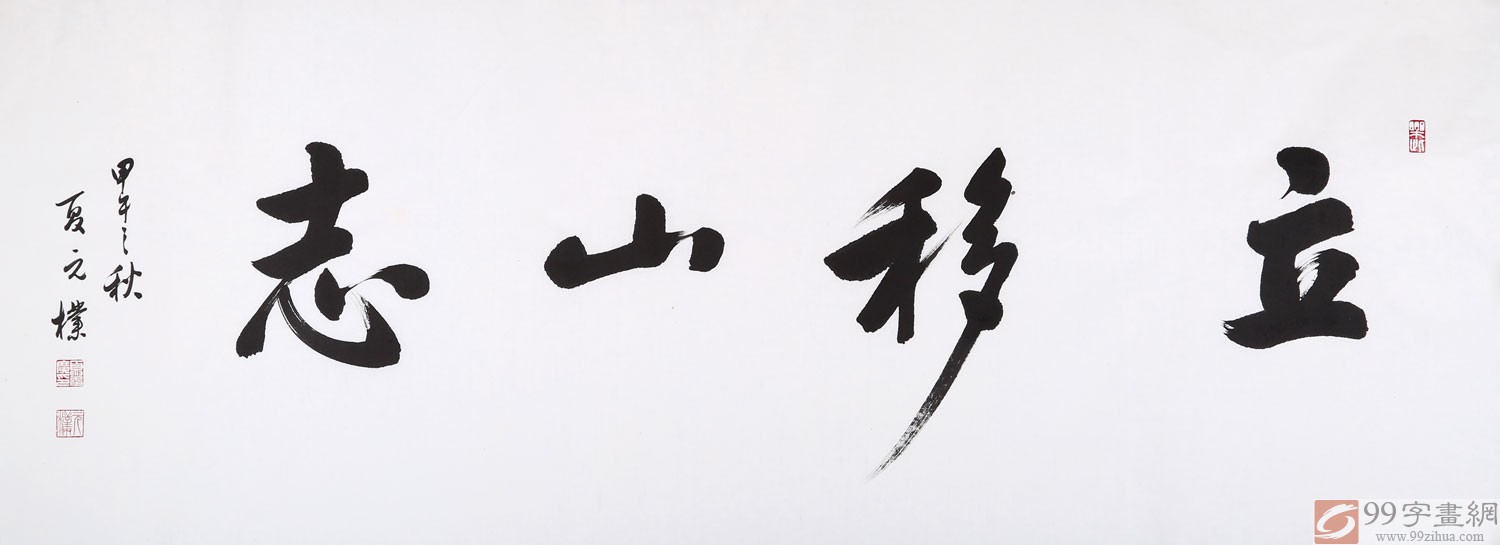 立移山志
甲午之秋
夏元樸
99字畫網
www.99zihua.com